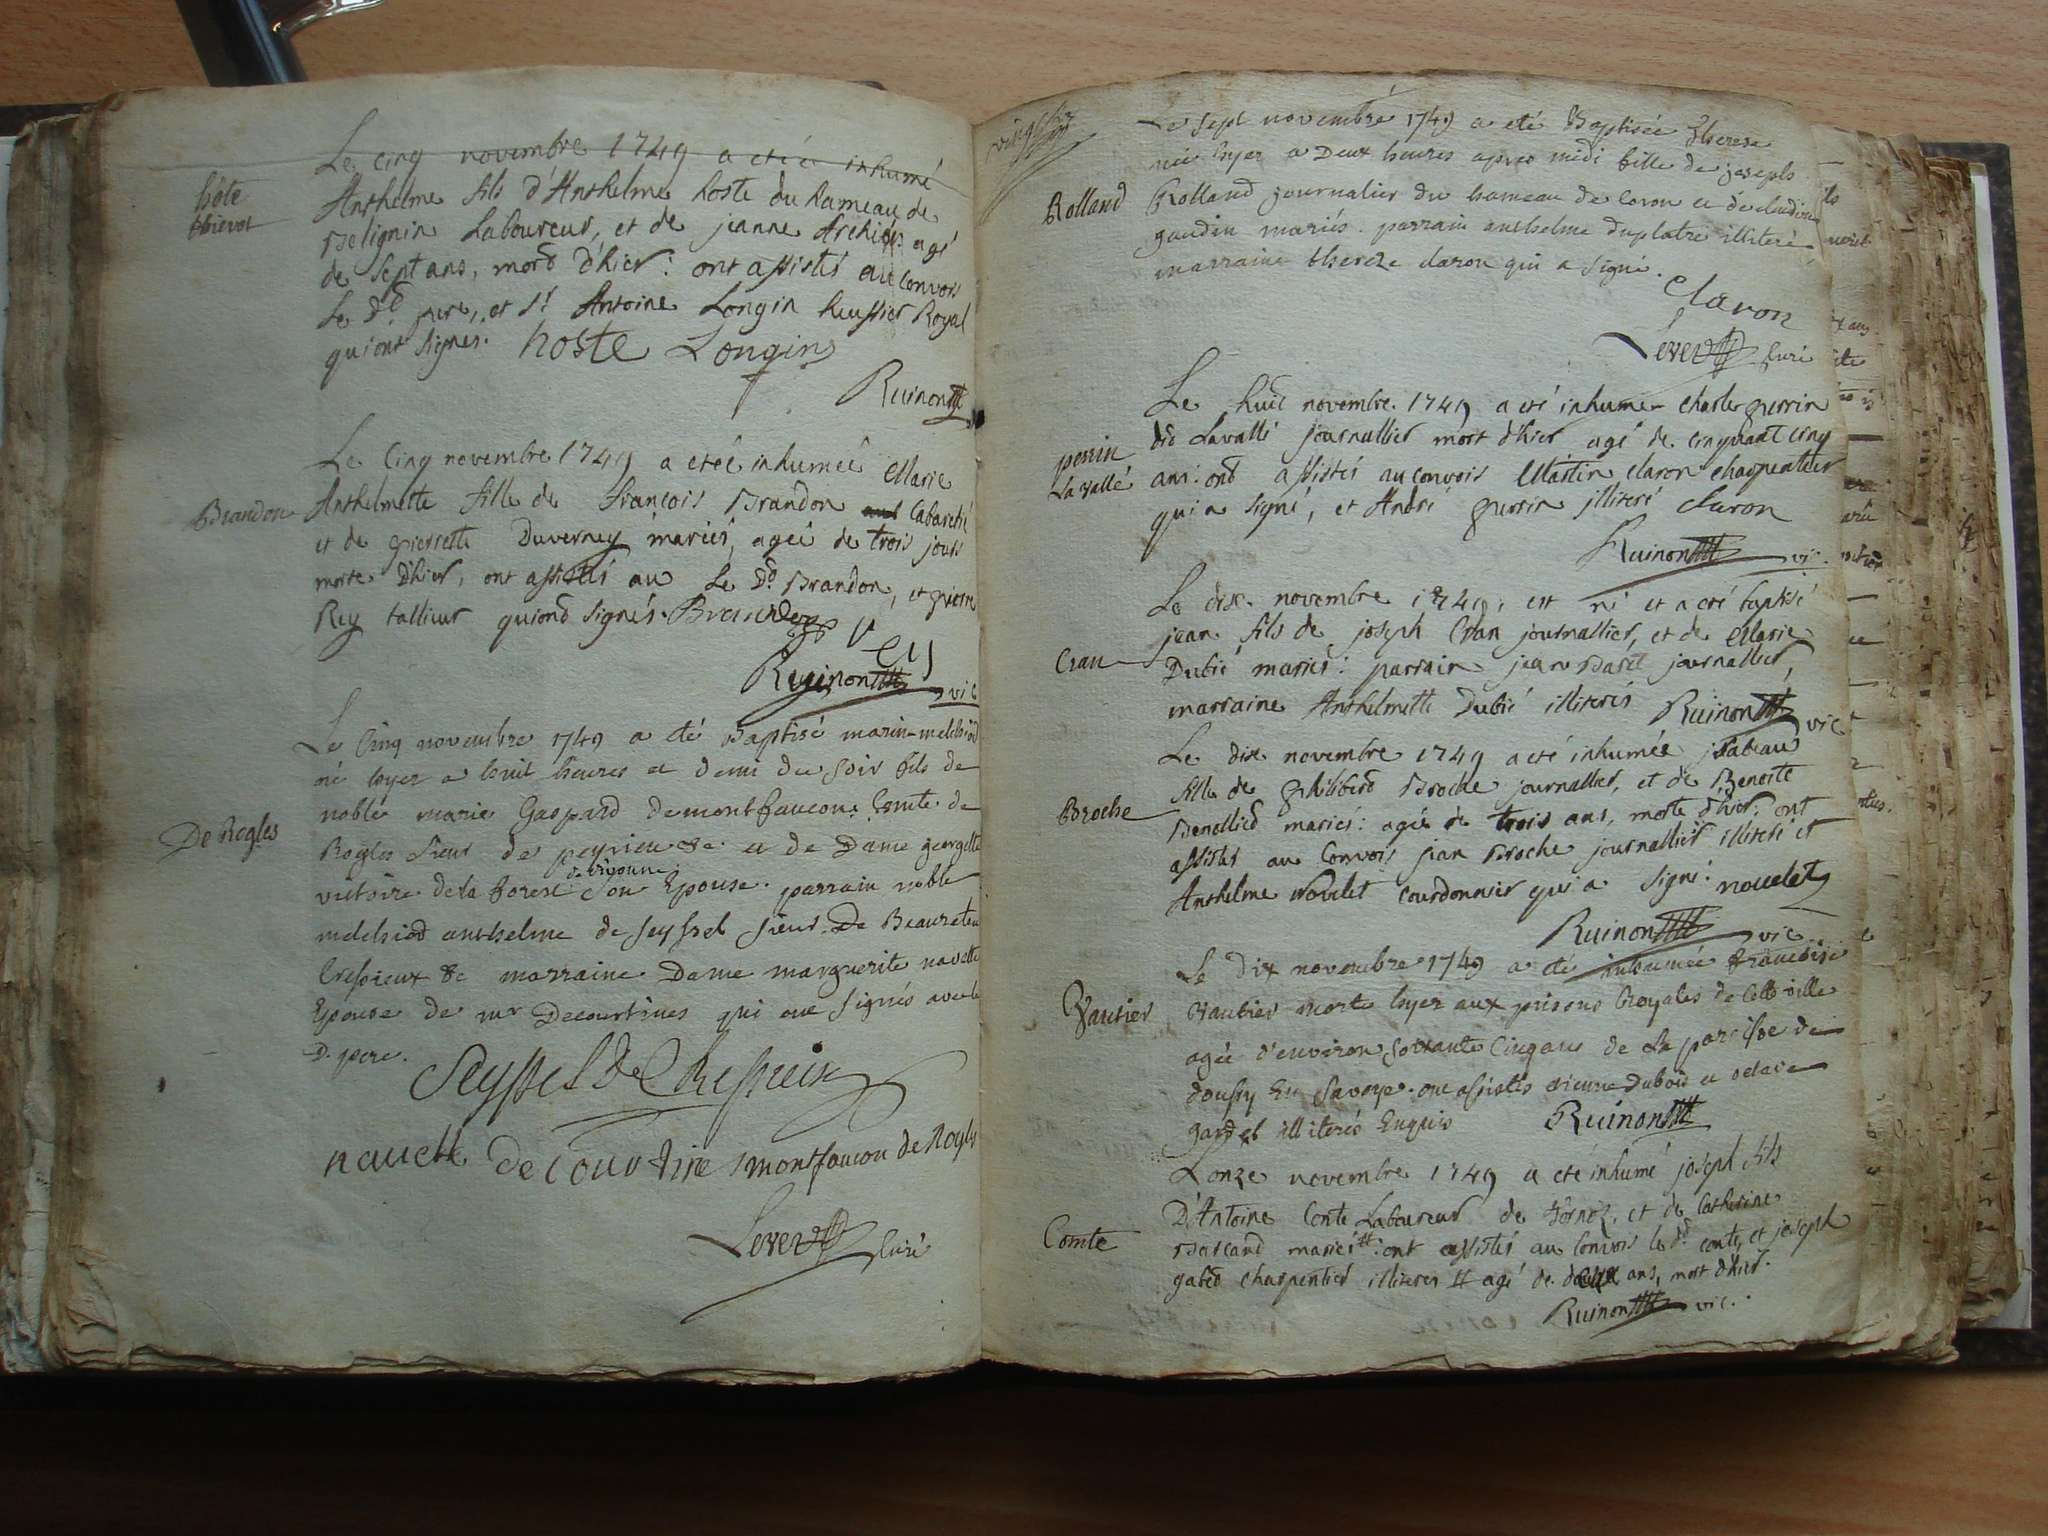 hôte
Le cinq novembre 1749 a etée inhumé
Anthelme fils d'Anthelme hoste du hameau de
Belignin Laboureur, et de jeanne agé
de sept ans, mord d'hier: ont assistés au convois
Le dt. pere, et Sr. Antoine Longin huissier Royal
qui ont signés. hoste Longin
Ruinon
Brandon
Le Cinq novembre 1749 a etéé inhumeé Marie
Anthelmette fille de francois Brandon Cabaretié
et de pierrette Duverney mariés, ageé de trois jours
morte d'hier, ont assistés au Le Dt. Brandon, et pierre
Rey tallieur qui ond signés. Brandon
Rey
Ruinon vic
De Rogles
Le Cinq novembre 1749 a été Baptisé marin-melchiod
né hyer a huit heures et demi du soir fils de
noble marie Gaspard demontfaucon Comte de
Rogles sieur de peyrieu &c. et de Dame georgette
de divonne
victoire de la forest son Epouse. parrain noble
melchiod anthelme de seyssel sieur De Beauretour
Cressieux &c marraine Dame marguerite navette
Epouse de mr Decourtines qui ont signés avec le
D. pere.
Seyssel de Chessieix
navette de courtine montfaucon de Rogles
Lever curé
Rolland
Le sept novembre 1749 a eté Baptisée therese
née hyer a Deux heures apres midi fille de joseph
Rolland journalier du hameau de Coron et de claudine
gaudin mariés. parrain anthelme duplatre illiteré
marraine thereze claron qui a signé.
Claron
Lever Curé
perrin
La vallé
Le huit novembre 1749 a eté inhumé charle perrin
did Lavallé journallier mort d'hier agé de cinquant cinq
ans: ond assistés au convois Martin claron charpentier
qui a signé, et André perrin illiteré Claron
Ruinon vic.
Cran
Le dix novembre 1749, est né et a eté baptisé
jean fils de joseph Cran journallier, et de Marie
Dubié mariés: parrain jean journallier,
marraine Anthelmette Dubié illiterés Ruinon vic
Broche
Le dix novembre 1749 a eté inhumée jsabeau
fille de philiberd Broche journallier, et de Benoite
mariés: ageé de trois ans, morte d'hier: ont
assistés au Convois jean Broche journallier illiteré et
Anthelme noulet courdonnier qui a signé. noulet
Ruinon vic
Gautier
Le Dix novembre 1749 a été inhumée francoise
Gautier morte hyer aux prisons Royales de cette ville
agée d'environ soixante Cinq ans de La paroisse de
doussy En Savoye. ont assistés pierre Dubois et
illiterés Enquis Ruinon
Comte
Lonze novembre 1749 a eté inhumé joseph fils
D'Antoine Conte Laboureur de et de Catherine
mariés #: ont assistés au Convois le dt. conte, et joseph
gabed charpentier illiteres # agé de deux ans, mort d'hier.
Ruinon vic.